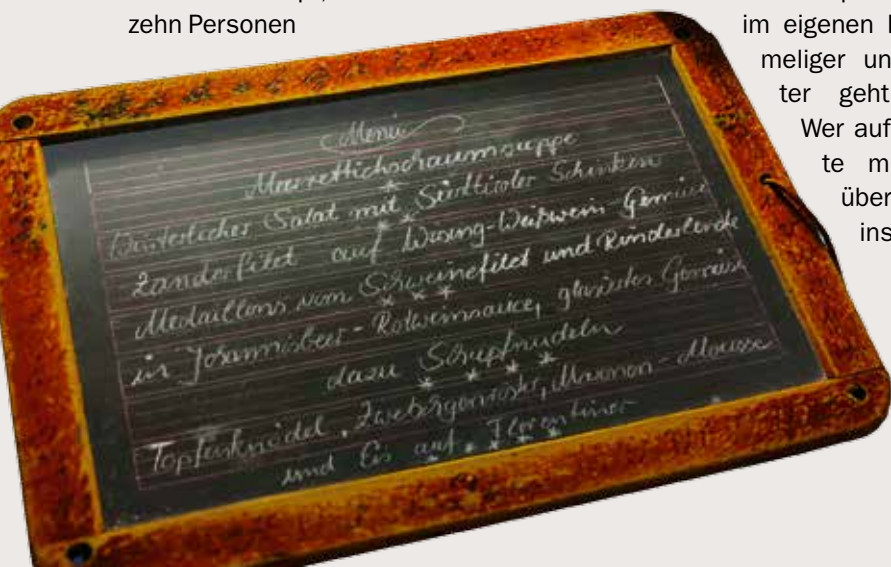 zehn Personen
im eigenen
meliger
ter geht
Wer auf
te
über
ins
Menü
Meerrettichschaumsuppe
*
Winterlicher Salat mit Südtiroler Schinken
* *
Zanderfilet auf Wirsing-Weißwein Gemüse
* * *
Medaillons vom Schweinefilet und Rinderlende
in Johannisbeer-Rotweinsauce, glasiertes Gemüse
dazu Schupfnudeln
* * * *
Topfenknödel, Maronen-Mousse
und Eis auf Florentiner
* * * * *